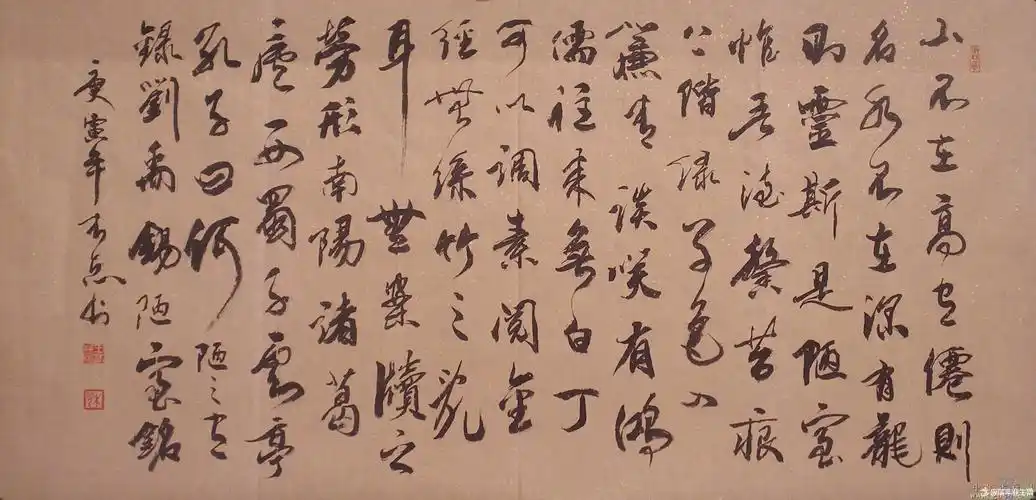 山不在高有僊則
名水不在深有龍
則靈斯是陋室
惟吾德馨苔痕
上階緑草色入
簾青談笑有鴻
儒往來無白丁
可以調素閱金
經無絲竹之亂
耳無案牘之
勞形南陽諸葛
廬西蜀子雲亭
孔子曰何陋之有
錄劉禹錫陋室銘
庚寅年